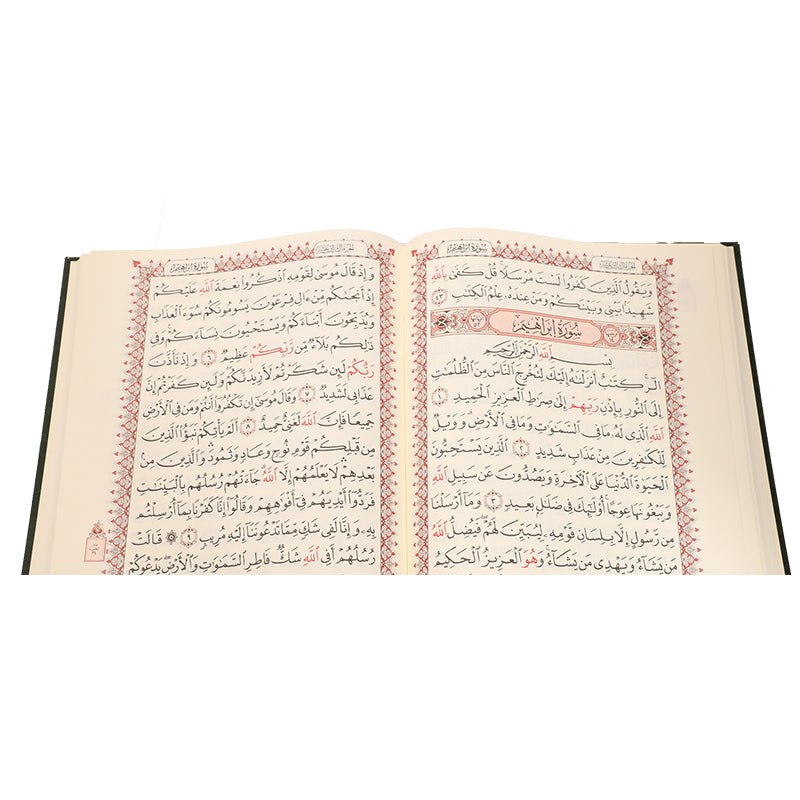 سورة إبراهيم
الجزء الثالث عشر
وَيَقُولُ الَّذِينَ كَفَرُوا لَسْتَ مُرْسَلًا ۚ قُلْ كَفَىٰ بِاللَّهِ
شَهِيدًا بَيْنِي وَبَيْنَكُمْ وَمَنْ عِندَهُ عِلْمُ الْكِتَابِ ٤٣
سورة إبراهيم
بِسْمِ اللَّهِ الرَّحْمَٰنِ الرَّحِيمِ
الر ۚ كِتَابٌ أَنزَلْنَاهُ إِلَيْكَ لِتُخْرِجَ النَّاسَ مِنَ الظُّلُمَاتِ
إِلَى النُّورِ بِإِذْنِ رَبِّهِمْ إِلَىٰ صِرَاطِ الْعَزِيزِ الْحَمِيدِ ١
اللَّهِ الَّذِي لَهُ مَا فِي السَّمَاوَاتِ وَمَا فِي الْأَرْضِ ۗ وَوَيْلٌ
لِّلْكَافِرِينَ مِنْ عَذَابٍ شَدِيدٍ ٢ الَّذِينَ يَسْتَحِبُّونَ
الْحَيَاةَ الدُّنْيَا عَلَى الْآخِرَةِ وَيَصُدُّونَ عَن سَبِيلِ اللَّهِ
وَيَبْغُونَهَا عِوَجًا ۚ أُولَٰئِكَ فِي ضَلَالٍ بَعِيدٍ ٣ وَمَا أَرْسَلْنَا
مِن رَّسُولٍ إِلَّا بِلِسَانِ قَوْمِهِ لِيُبَيِّنَ لَهُمْ ۖ فَيُضِلُّ اللَّهُ
مَن يَشَاءُ وَيَهْدِي مَن يَشَاءُ ۚ وَهُوَ الْعَزِيزُ الْحَكِيمُ
الجزء الثالث عشر
سورة إبراهيم
وَإِذْ قَالَ مُوسَىٰ لِقَوْمِهِ اذْكُرُوا نِعْمَةَ اللَّهِ عَلَيْكُمْ
إِذْ أَنجَاكُم مِّنْ آلِ فِرْعَوْنَ يَسُومُونَكُمْ سُوءَ الْعَذَابِ
وَيُذَبِّحُونَ أَبْنَاءَكُمْ وَيَسْتَحْيُونَ نِسَاءَكُمْ ۚ وَفِي
ذَٰلِكُم بَلَاءٌ مِّن رَّبِّكُمْ عَظِيمٌ ٦ وَإِذْ تَأَذَّنَ
رَبُّكُمْ لَئِن شَكَرْتُمْ لَأَزِيدَنَّكُمْ ۖ وَلَئِن كَفَرْتُمْ إِنَّ
عَذَابِي لَشَدِيدٌ ٧ وَقَالَ مُوسَىٰ إِن تَكْفُرُوا أَنتُمْ وَمَن فِي الْأَرْضِ
جَمِيعًا فَإِنَّ اللَّهَ لَغَنِيٌّ حَمِيدٌ ٨ أَلَمْ يَأْتِكُمْ نَبَأُ الَّذِينَ
مِن قَبْلِكُمْ قَوْمِ نُوحٍ وَعَادٍ وَثَمُودَ ۛ وَالَّذِينَ مِن
بَعْدِهِمْ ۛ لَا يَعْلَمُهُمْ إِلَّا اللَّهُ ۚ جَاءَتْهُمْ رُسُلُهُم بِالْبَيِّنَاتِ
فَرَدُّوا أَيْدِيَهُمْ فِي أَفْوَاهِهِمْ وَقَالُوا إِنَّا كَفَرْنَا بِمَا أُرْسِلْتُم
بِهِ وَإِنَّا لَفِي شَكٍّ مِّمَّا تَدْعُونَنَا إِلَيْهِ مُرِيبٍ ٩ ۞ قَالَتْ
رُسُلُهُمْ أَفِي اللَّهِ شَكٌّ فَاطِرِ السَّمَاوَاتِ وَالْأَرْضِ ۖ يَدْعُوكُمْ